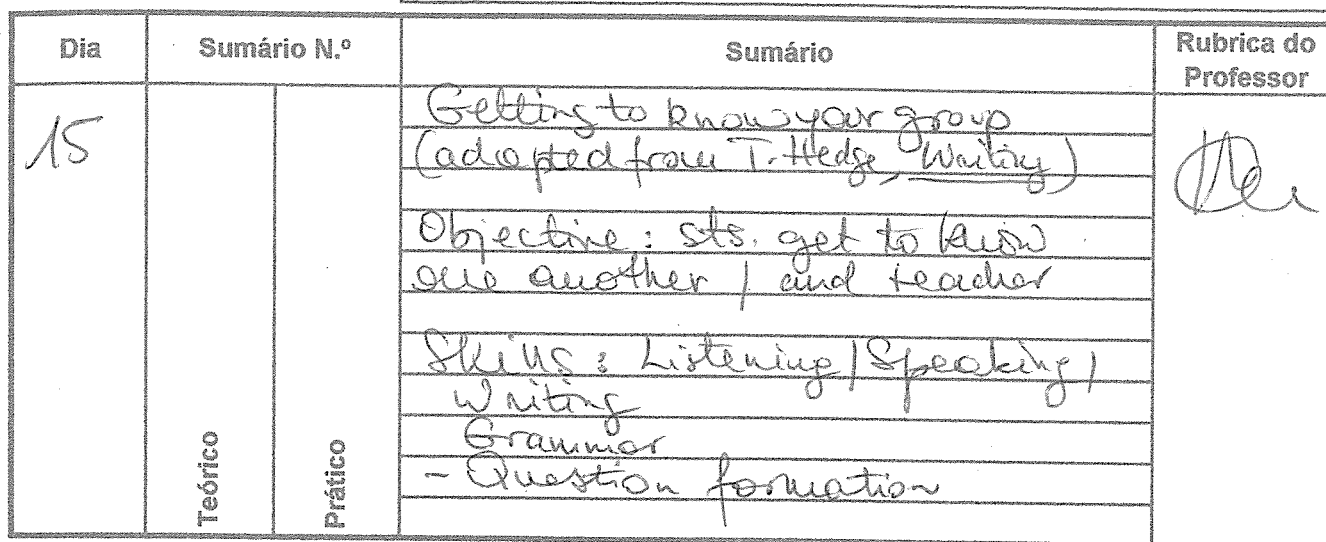 Dia Sumário N.º Sumário Rubrica do Professor
15
Getting to know your group
(adapted from T. Hedge, Writing)
Objective : sts. get to know
one another / and teacher
Skills : Listening / Speaking /
Writing
Grammar
- Question formation
Teórico
Prático